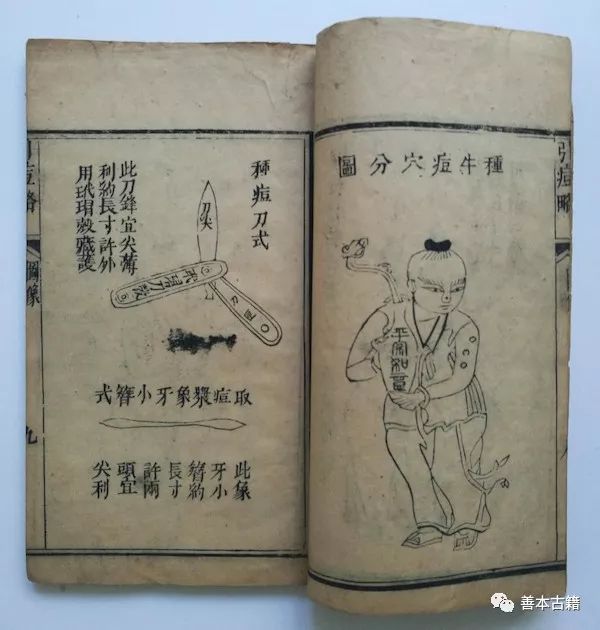 引痘略
種牛痘穴分圖
平安如意
種痘刀式
刀尖
玳瑁刀殼
此刀鋒宜尖薄
利約長寸許外
用玳瑁殼藏護
取痘漿象牙小簪式
此象
牙小
簪約
長寸
許兩
頭宜
尖利
引痘略
圖像
九
善本古籍